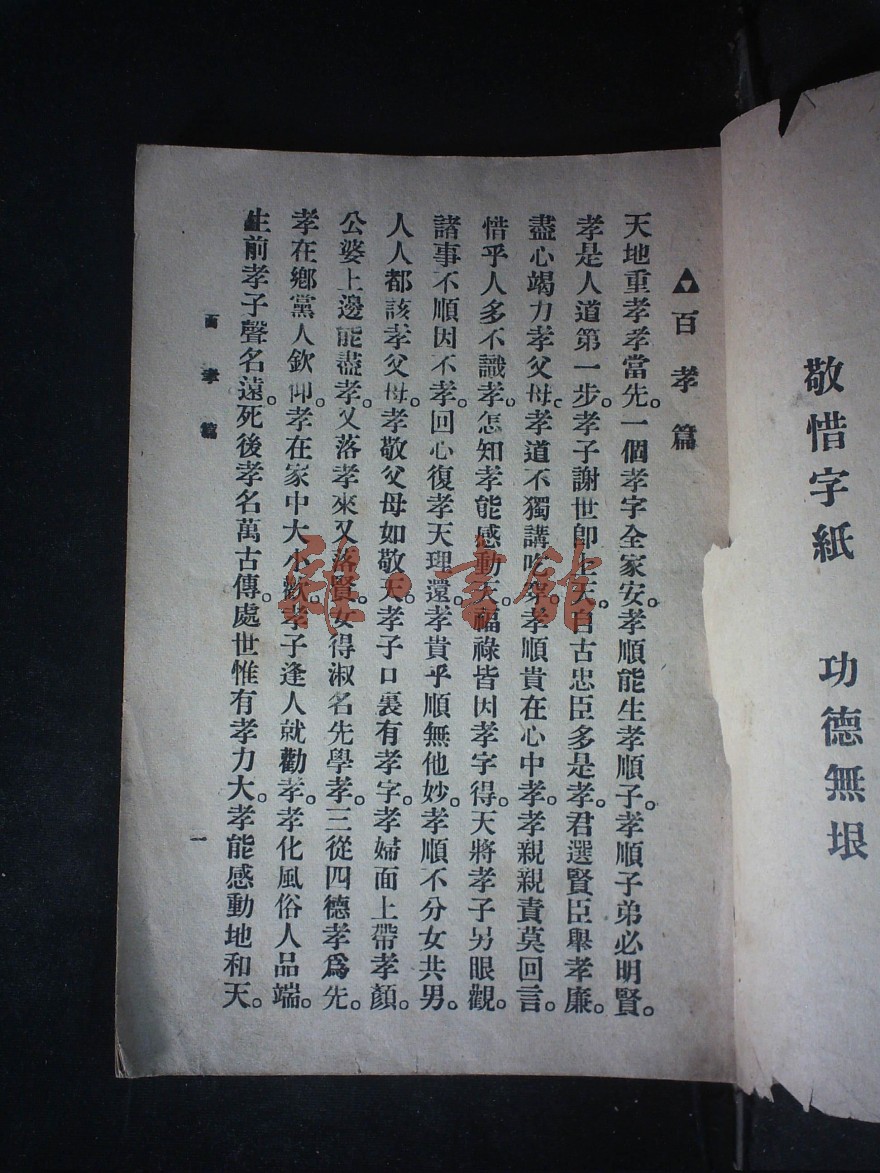 敬惜字紙 功德無垠
▲百孝篇
天地重孝孝當先。一個孝字全家安。孝順能生孝順子。孝順子弟必明賢。
孝是人道第一步。孝子謝世卽上天。自古忠臣多是孝。君選賢臣舉孝廉。
盡心竭力孝父母。孝道不獨講吃穿。孝順貴在心中孝。孝親親責莫回言。
惜乎人多不識孝。怎知孝能感動天。福祿皆因孝字得。天將孝子另眼觀。
諸事不順因不孝。回心復孝天理還。孝貴乎順無他妙。孝順不分女共男。
人人都該孝父母。孝敬父母如敬天。孝子口裏有孝字。孝婦面上帶孝顏。
公婆上邊能盡孝。又落孝來又落賢。女得淑名先學孝。三從四德孝爲先。
孝在鄉黨人欽仰。孝在家中大小歡。孝子逢人就勸孝。孝化風俗人品端。
生前孝子聲名遠。死後孝名萬古傳。處世惟有孝力大。孝能感動地和天。
百孝篇
一
雜·書館